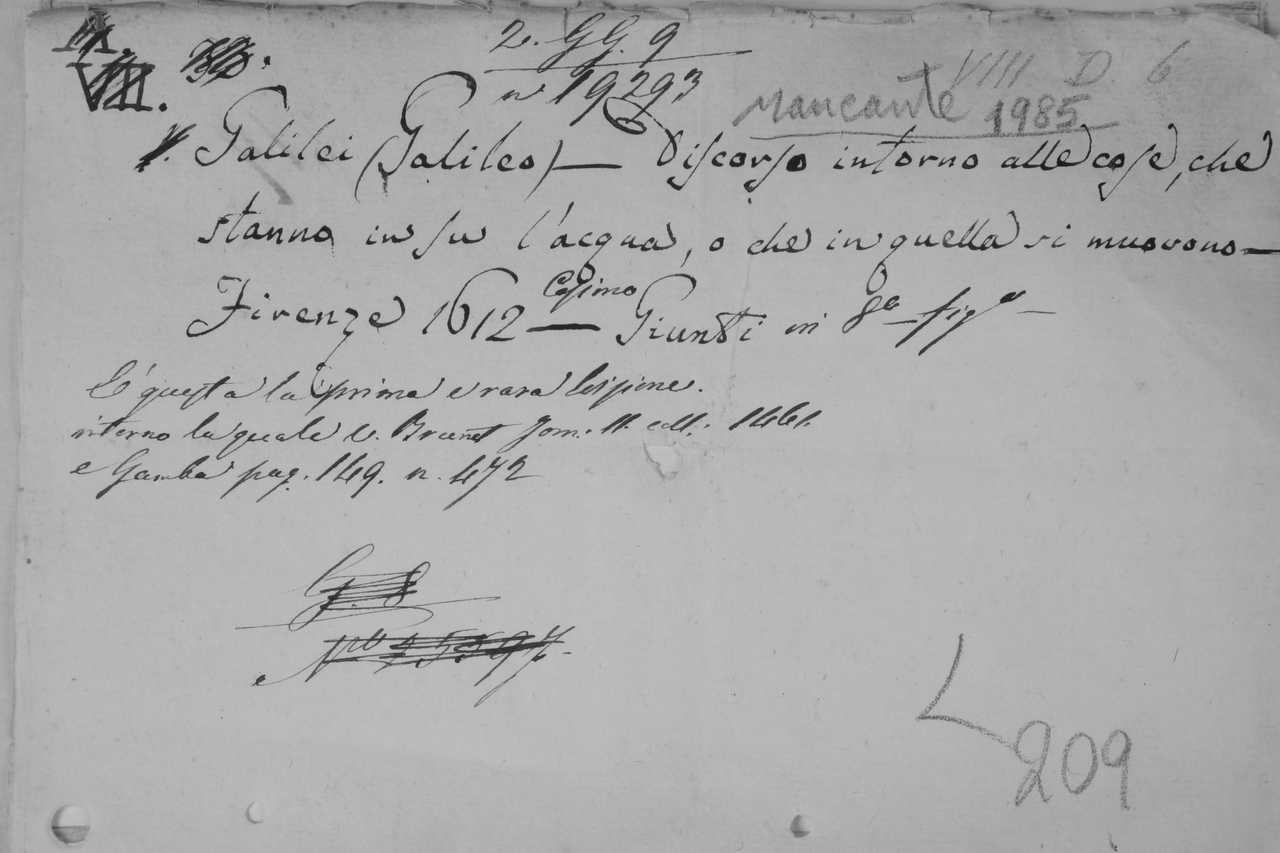 VII.
2. GG. 9
n 19293
VIII D. 6
Mancante 1985
Galilei (Galileo) — Discorso intorno alle cose, che
stanno in su l'acqua, o che in quella si muovono —
Firenze 1612 — Cosimo Giunti in 8° — fig.ª —
E' questa la prima e rara
intorno la quale v. Brunet Tom. II. coll. 1461.
e Gamba pag. 149. n. 472
G. 8
209